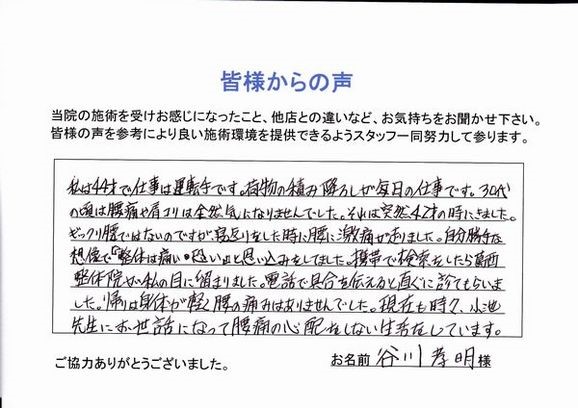 皆様からの声
当院の施術を受けお感じになったこと、他店との違いなど、お気持ちをお聞かせ下さい。
皆様の声を参考により良い施術環境を提供できるようスタッフ一同努力して参ります。
私は44才で仕事は運転手です。荷物の積み降ろしが毎日の仕事です。30代
の頃は腰痛や肩コリは全然気になりませんでした。それは突然42才の時にきました。
ぎっくり腰ではないのですが寝返りをした時に腰に激痛が走りました。自分勝手な
想像で『整体は痛い・恐い』と思い込みをしてました。携帯で検索をしたら葛西
整体院が私の目に留まりました。電話で具合を伝えると直ぐに診てもらいま
した。帰りは身体が軽く腰の痛みはありませんでした。現在も時々、小池
先生にお世話になって腰痛の心配をしない生活をしています。
ご協力ありがとうございました。
お名前 谷川孝明様